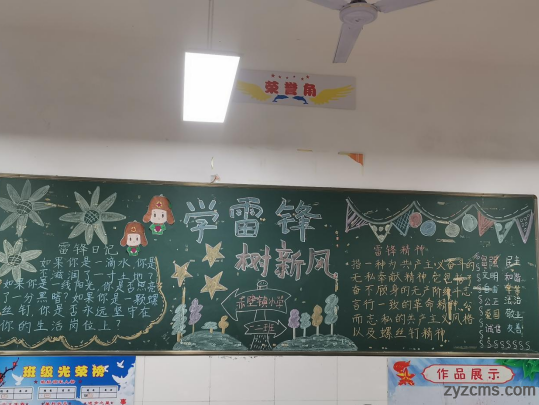 荣誉角
学雷锋
树新风
雷锋日记
如果你是一滴水,你是
否滋润了一寸土地?
如果你是一线阳光,你是否照亮
了一分黑暗?如果你是一颗螺
丝钉,你是否永远坚守在
你的生活岗位上?
雷锋精神
无私奉献精神
奋不顾身的无产阶级
言行一致的革命精神
而志私的共产主义风格
以及螺丝钉精神
富强 民主
文明 和谐
自由 平等
公正 法治
爱国 敬业
诚信 友善
班级光荣榜
作品展示
zyzcms.com